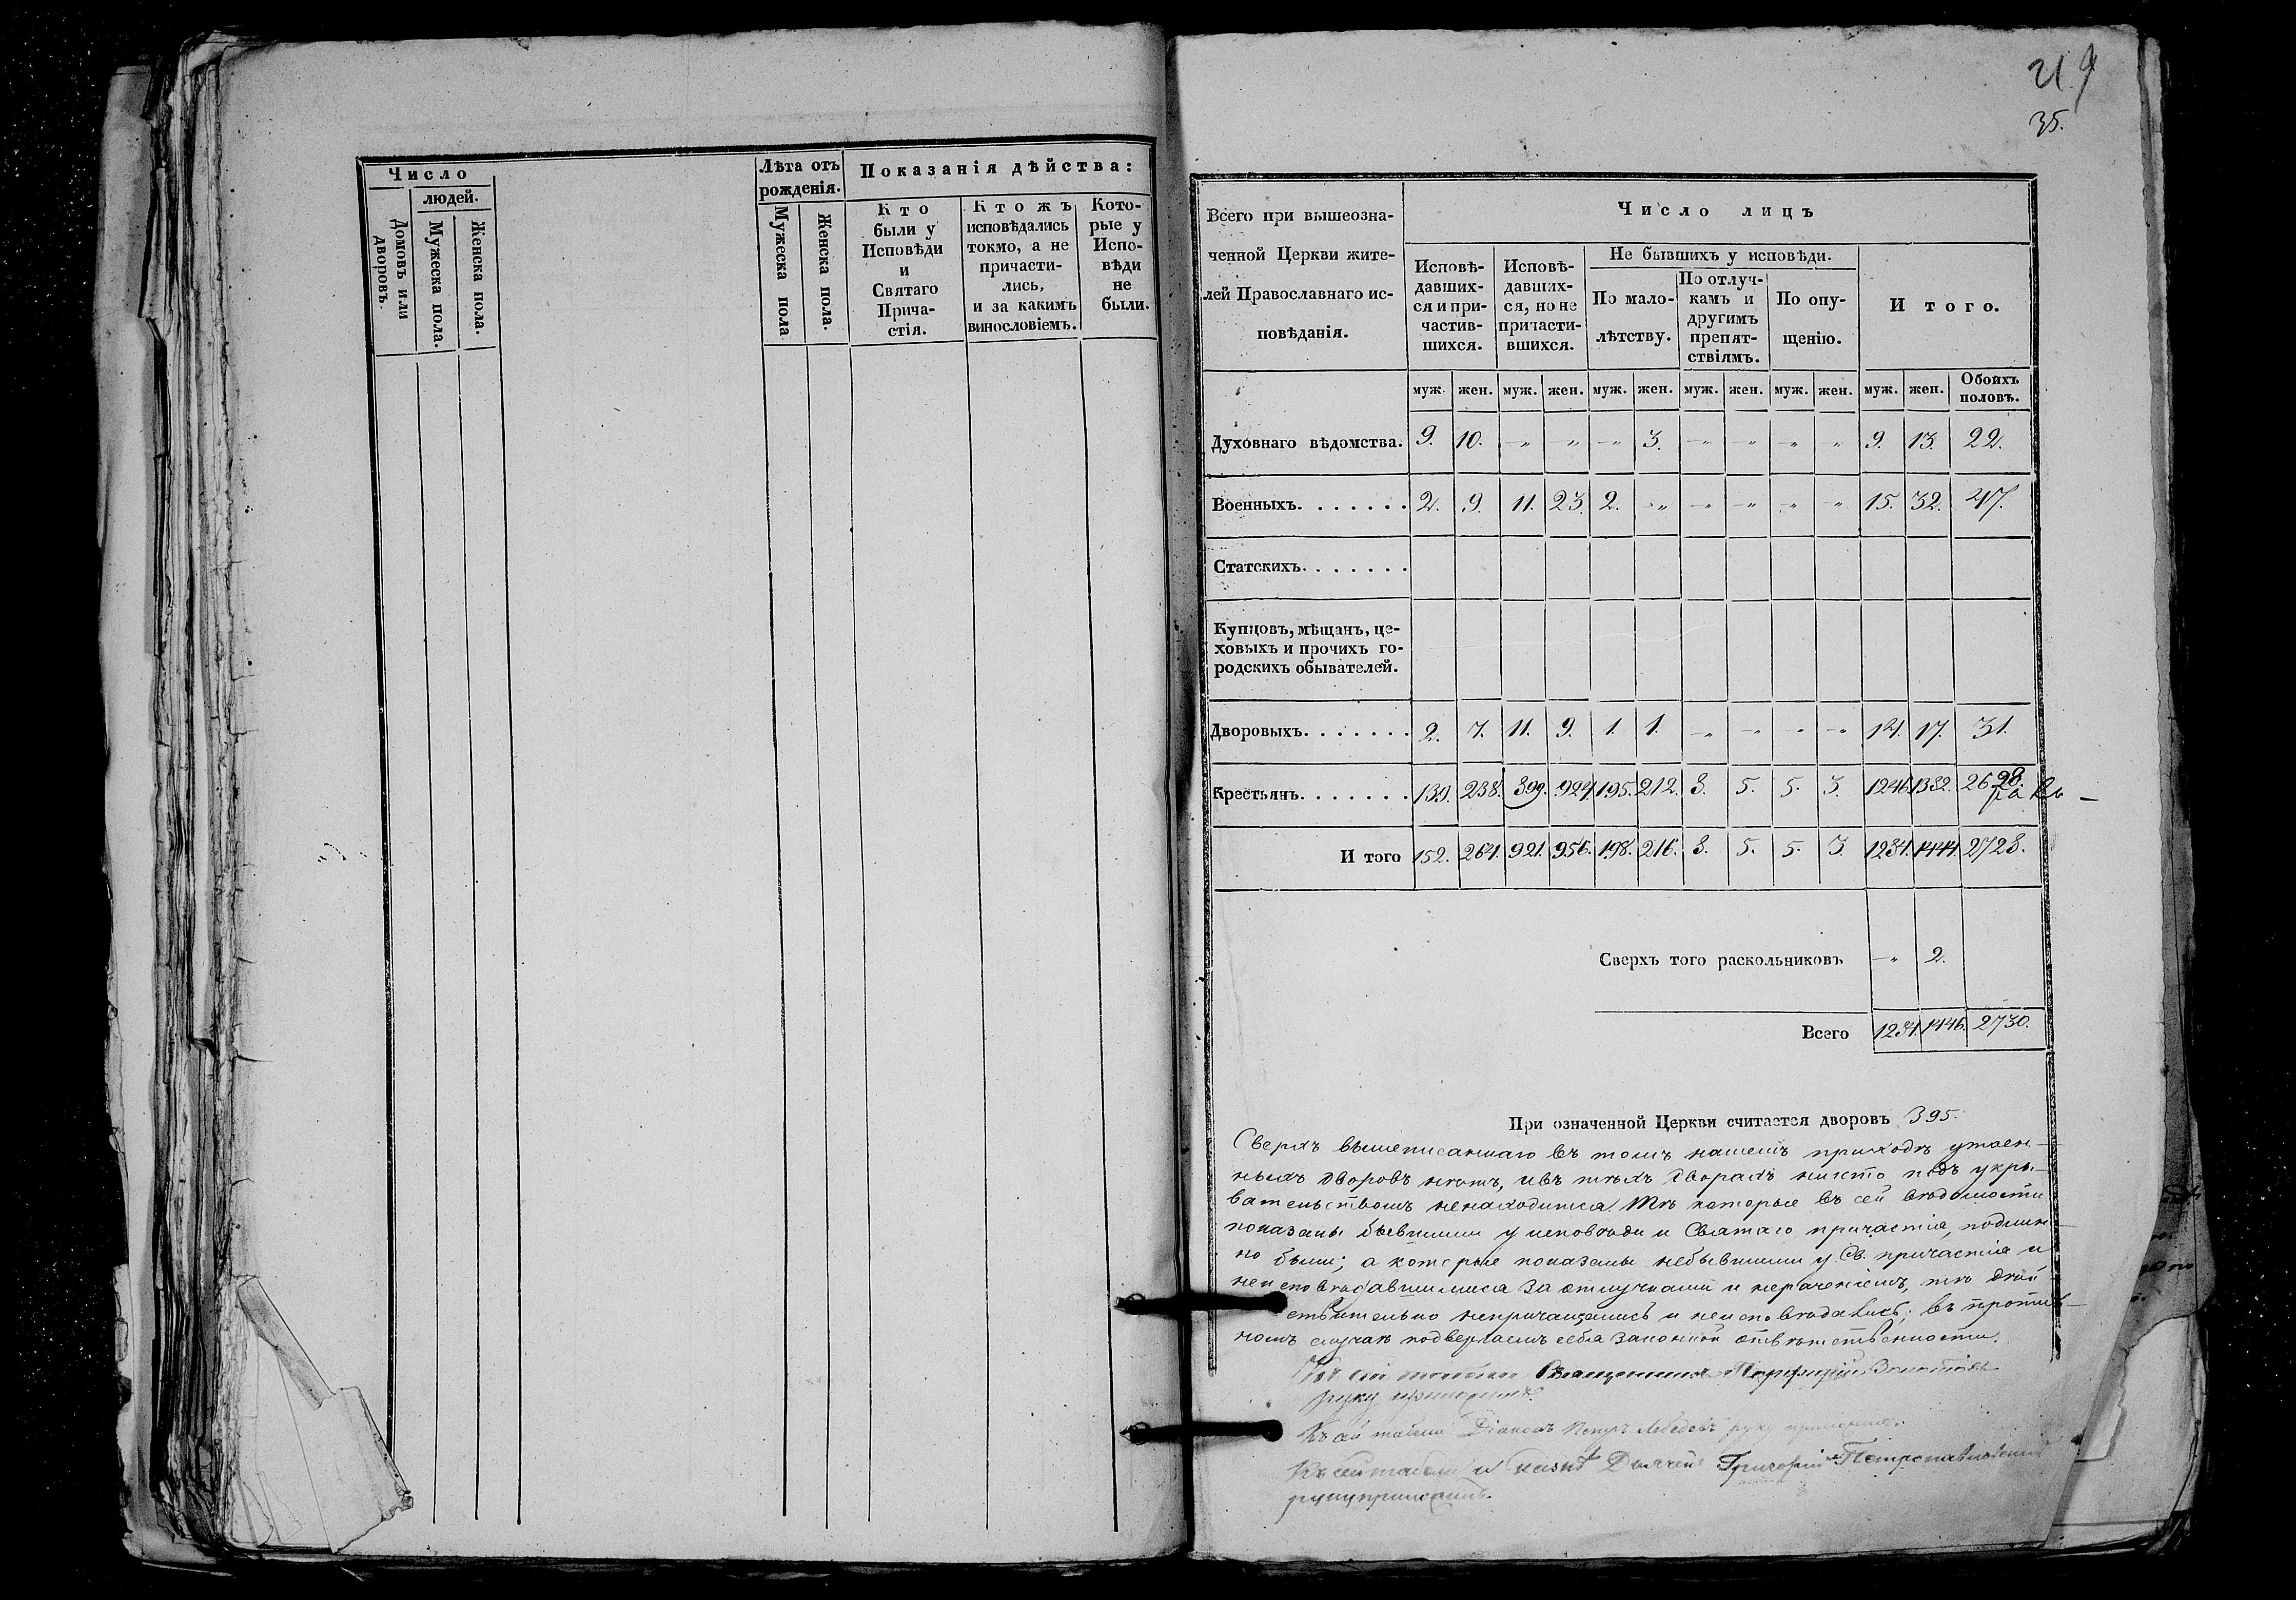 Число
людей.
Домовъ или дворовъ.
Мужеска пола.
Женска пола.
Лѣта отъ
рожденія.
Мужеска пола
Женска пола.
Показанія дѣйства:
Кто
были у
Исповѣди
и
Святаго
Прича-
стія.
Кто жъ
исповѣдались
токмо, а не
причасти-
лись,
и за какимъ
винословіемъ.
Кото-
рые у
Испо-
вѣди
не
были.
219
35.
Всего при вышеозна-
ченной Церкви жите-
лей Православнаго ис-
повѣданія.
Число лицъ
Исповѣ-
давших-
ся и при-
частив-
шихся.
Исповѣ-
давших-
ся, но не
причасти-
вшихся.
Не бывшихъ у исповѣди.
По мало-
лѣтству.
По отлуч-
камъ и
другимъ
препят-
ствіямъ.
По опу-
щенію.
И того.
муж. жен. муж. жен. муж. жен. муж. жен. муж. жен. муж. жен. Обоихъ половъ.
Духовнаго вѣдомства. 9. 10. -„ -„ -„ 3. -„ -„ -„ -„ 9. 13. 22.
Военныхъ. . . . . . . 2. 9. 11. 23. 2. -„ -„ -„ -„ -„ 15. 32. 47.
Статскихъ. . . . . . .
Купцовъ, мѣщанъ, це-
ховыхъ и прочихъ го-
родскихъ обывателей.
Дворовыхъ. . . . . . . 2. 7. 11. 9. 1. 1. -„ -„ -„ -„ 14. 17. 31.
Крестьянъ. . . . . . . 139. 238. 899. 924. 195. 212. 8. 5. 5. 3. 1246. 1382. 2628.
И того 152. 264. 921. 956. 198. 216. 8. 5. 5. 3. 1284. 1444. 2728.
Сверхъ того раскольниковъ -„ 2.
Всего 1284. 1446. 2730.
При означенной Церкви считается дворовъ 395.
Сверхъ вышеписаннаго въ томъ нашемъ приходѣ утаен-
ныхъ дворовъ нѣтъ, и въ тѣхъ дворахъ никто подъ укры-
вательствомъ не находится. Тѣ которые въ сей вѣдомости
показаны бывшими у исповѣди и Святаго причастія, подлин-
но были; а которые показаны небывшими у Св. причастія и
неисповѣдавшимися за отлучками и нераченіемъ, тѣ дѣй-
ствительно непричащались и неисповѣдались; въ против-
номъ случаѣ подвергаемъ себя законной отвѣтственности.
Къ сей табели Священникъ Порфирій
руку приложилъ.
Къ сей табели Діаконъ Петръ Лебедевъ руку приложилъ.
Къ сей табели и Дьячекъ Григорій Петропавловскій
руку приложилъ.